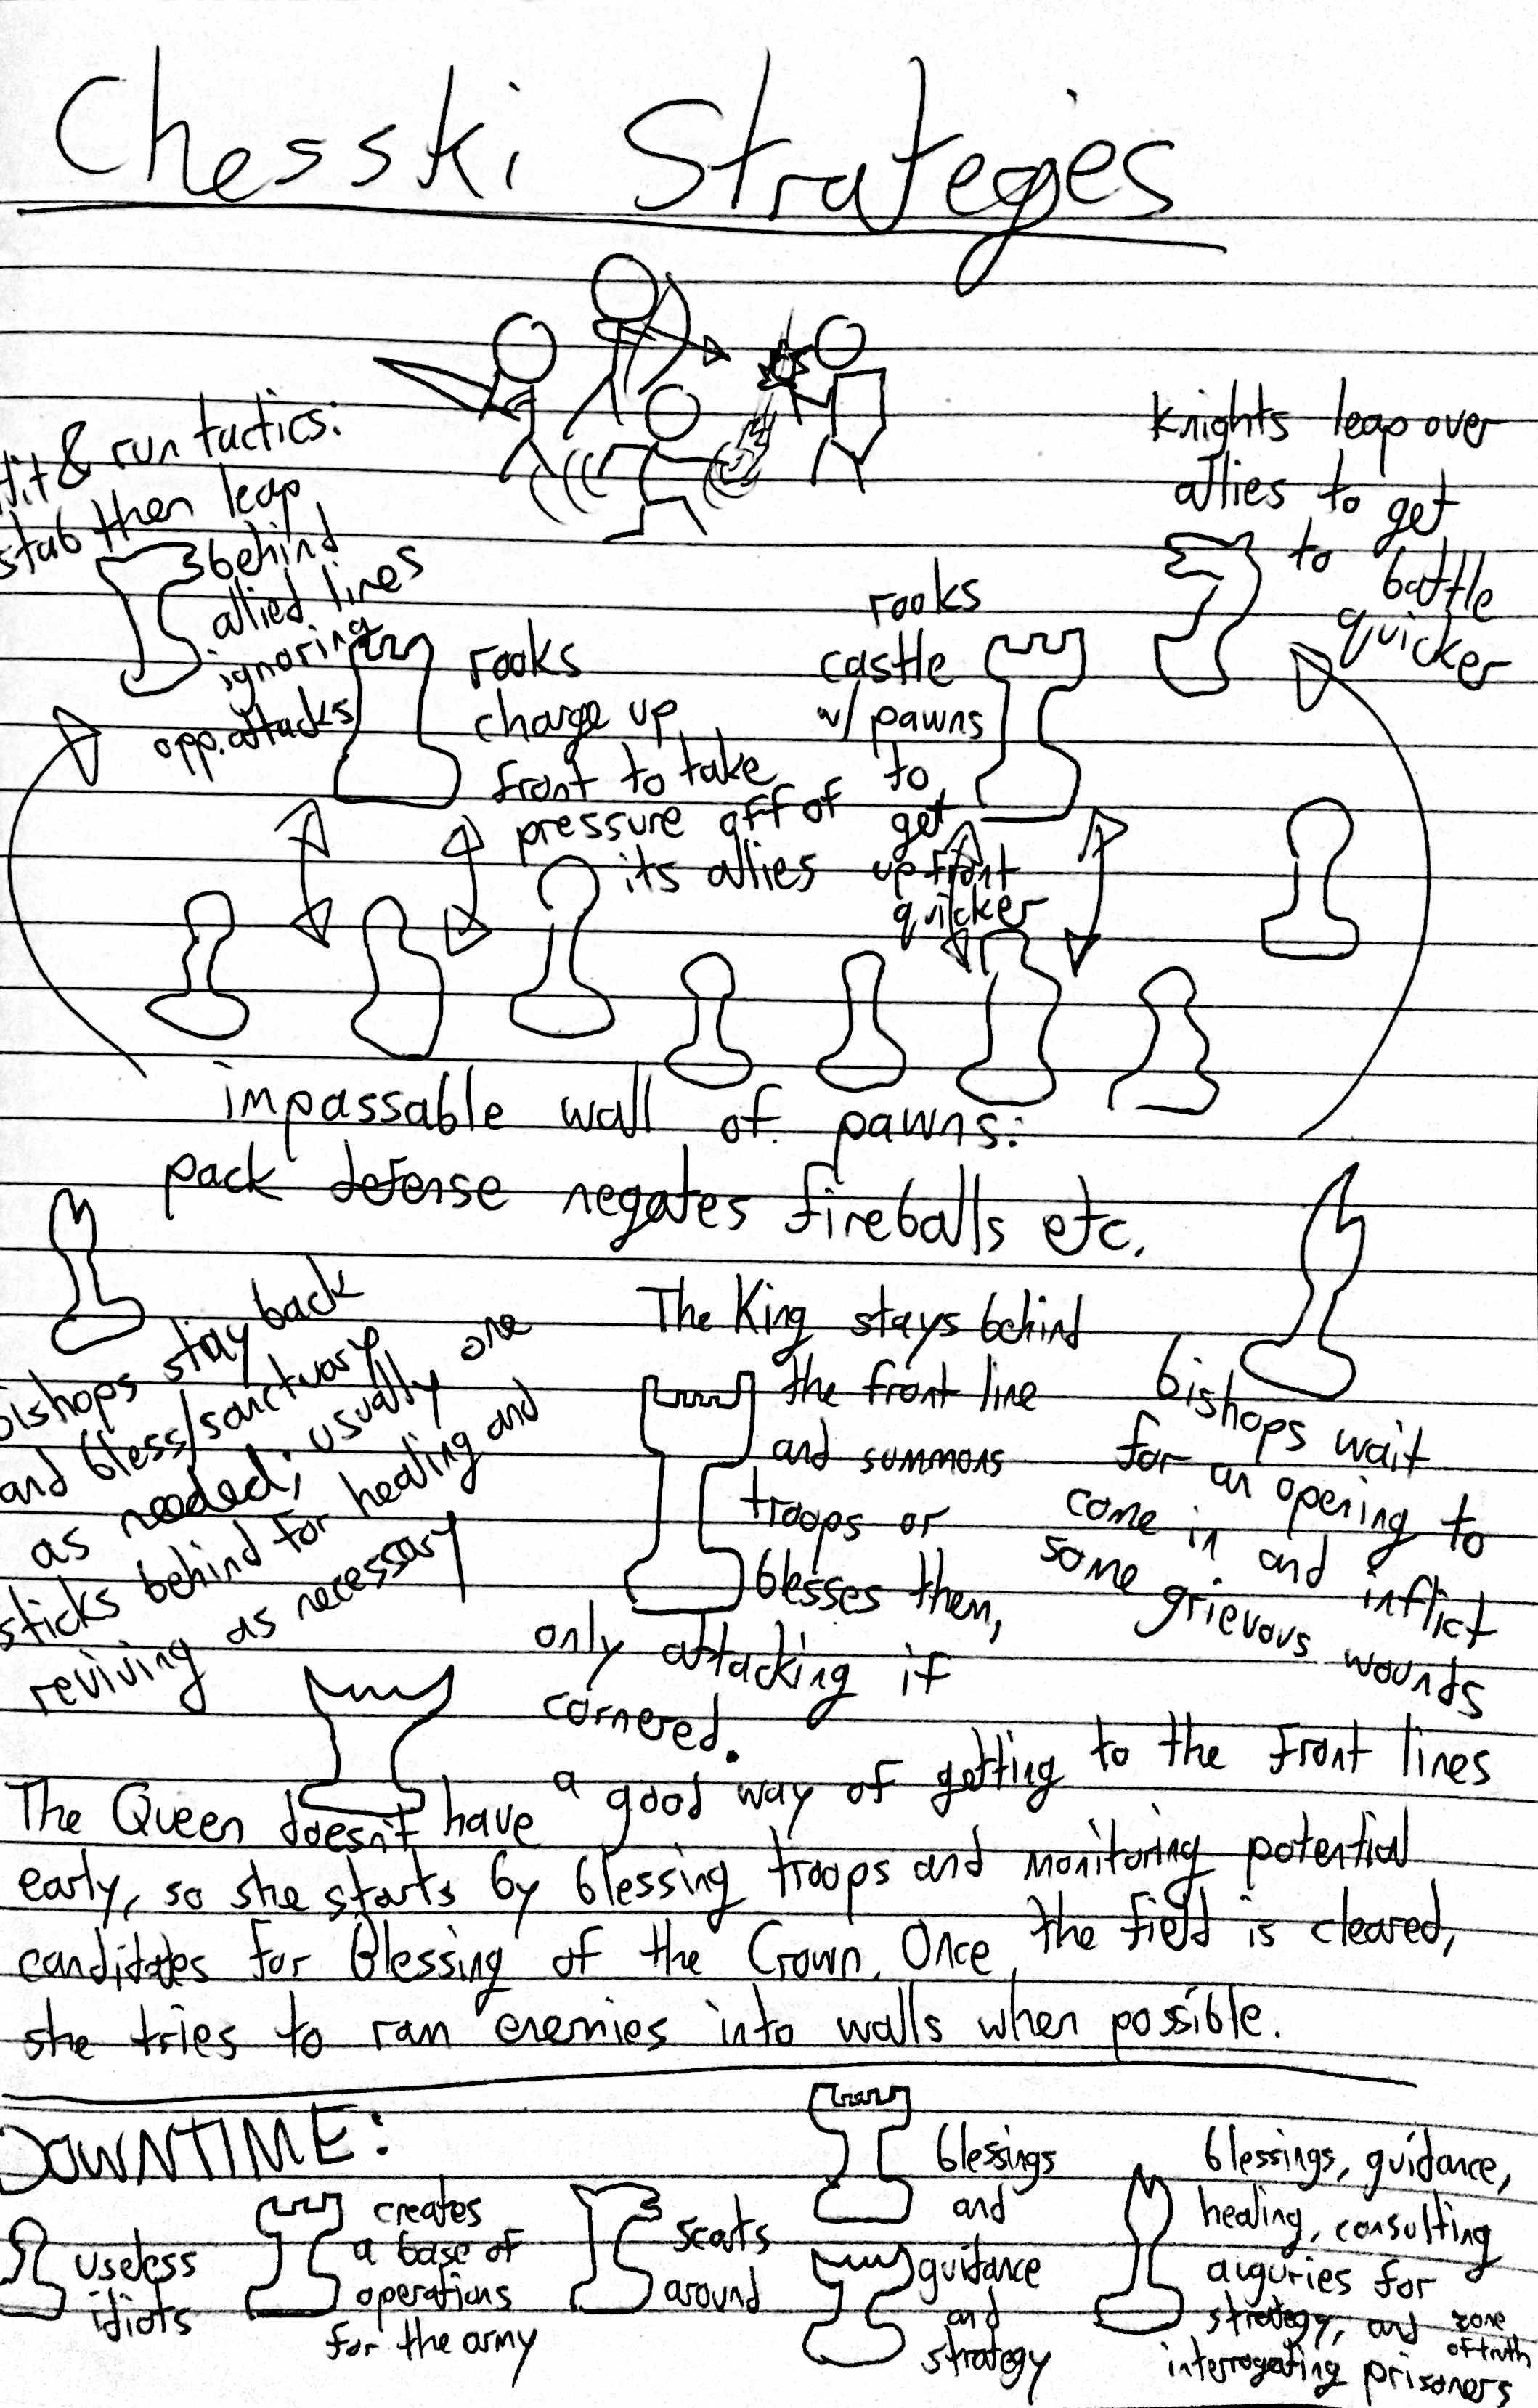 Chesski Strategies
Hit & run tactics:
stab then leap
behind
allied lines
ignoring
opp. attacks
rooks
charge up
front to take
pressure off of
its allies
rooks
castle
w/ pawns
to
get
up front
quicker
Knights leap over
allies to get
to battle
quicker
impassable wall of pawns:
pack defense negates fireballs etc.
bishops stay back
and bless/sanctuary
as needed; usually one
sticks behind for healing and
reviving as necessary
The King stays behind
the front line
and summons
troops or
blesses them,
only attacking if
cornered.
bishops wait
for an opening to
come in and inflict
some grievous wounds
The Queen doesn't have a good way of getting to the front lines
early, so she starts by blessing troops and monitoring potential
candidates for Blessing of the Crown. Once the field is cleared,
she tries to ram enemies into walls when possible.
DOWNTIME:
useless
idiots
creates
a base of
operations
for the army
scouts
around
blessings
and
guidance
and
strategy
blessings, guidance,
healing, consulting
auguries for
strategy, and zone
of truth
interrogating prisoners